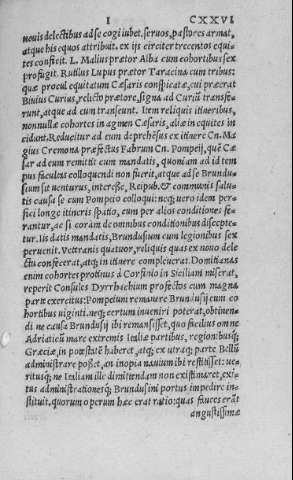 I CXXVI
neuis delectibus ad se cogi iubet. seruos, pastores armat,
atque his equos attribuit. ex ijs circiter trecentos equi-
tes conficit. L. Malius prætor Alba cum cohortibus sex
profugit. Rutilus Lupus prætor Taracina cum tribus:
quæ procul equitatum Cæsaris conspicatæ, cui præerat
Biuius Curius, relicto prætore, signa ad Curiũ transfe-
runt, atque ad eum transeunt. Item reliquis itineribus,
nonnullæ cohortes in agmen Cæsaris, aliæ in equites in
cidant. Reducitur ad eum deprehẽsus ex itinere Cn. Ma
gius Cremona præfectus Fabrum Cn. Pompeij, quẽ Cæ
sar ad eum remittit cum mandatis, quoniam ad id tem
pus facultas colloquendi non fuerit, atque ad se Brundu-
sium sit uenturus, interesse, Reipub. & communis salu-
tis causa se cum Pompeio colloqui: neq; uero idem per-
fici longe itineris spatio, cum per alios conditiones fe
rantur, ac si coram de omnibus conditionibus discepte-
tur. Iis datis mandatis, Brundusium cum legionibus sex
peruenit. Vetteranis quatuor, reliquis quas ex nouo dele
ctu confecerat, atq; in itinere compleuerat. Domitianas
enim cohortes protinus à Corfinio in Siciliam miserat,
reperit Consules Dyrrhachium profectos cum magna
parte exercitus: Pompeium remanere Brundusij cum co
hortibus uiginti. neq; certum inueniri poterat, obtinen-
di ne causa Brundusij ibi remansisset, quo facilius omne
Adriaticũ mare extremis Italiæ partibus, regionibusq;
Græciæ, in potestate haberet, atq; ex utraq; parte Bellũ
administrare posset, an inopia nauium ibi restitisset: ue-
ritusq; ne Italiam ille dimittendam non existimaret, exi-
tus administrationesq; Brundusini portus impedire in-
stituit, quorum operum hæc erat ratio: quas fauces erãt
angustissimæ